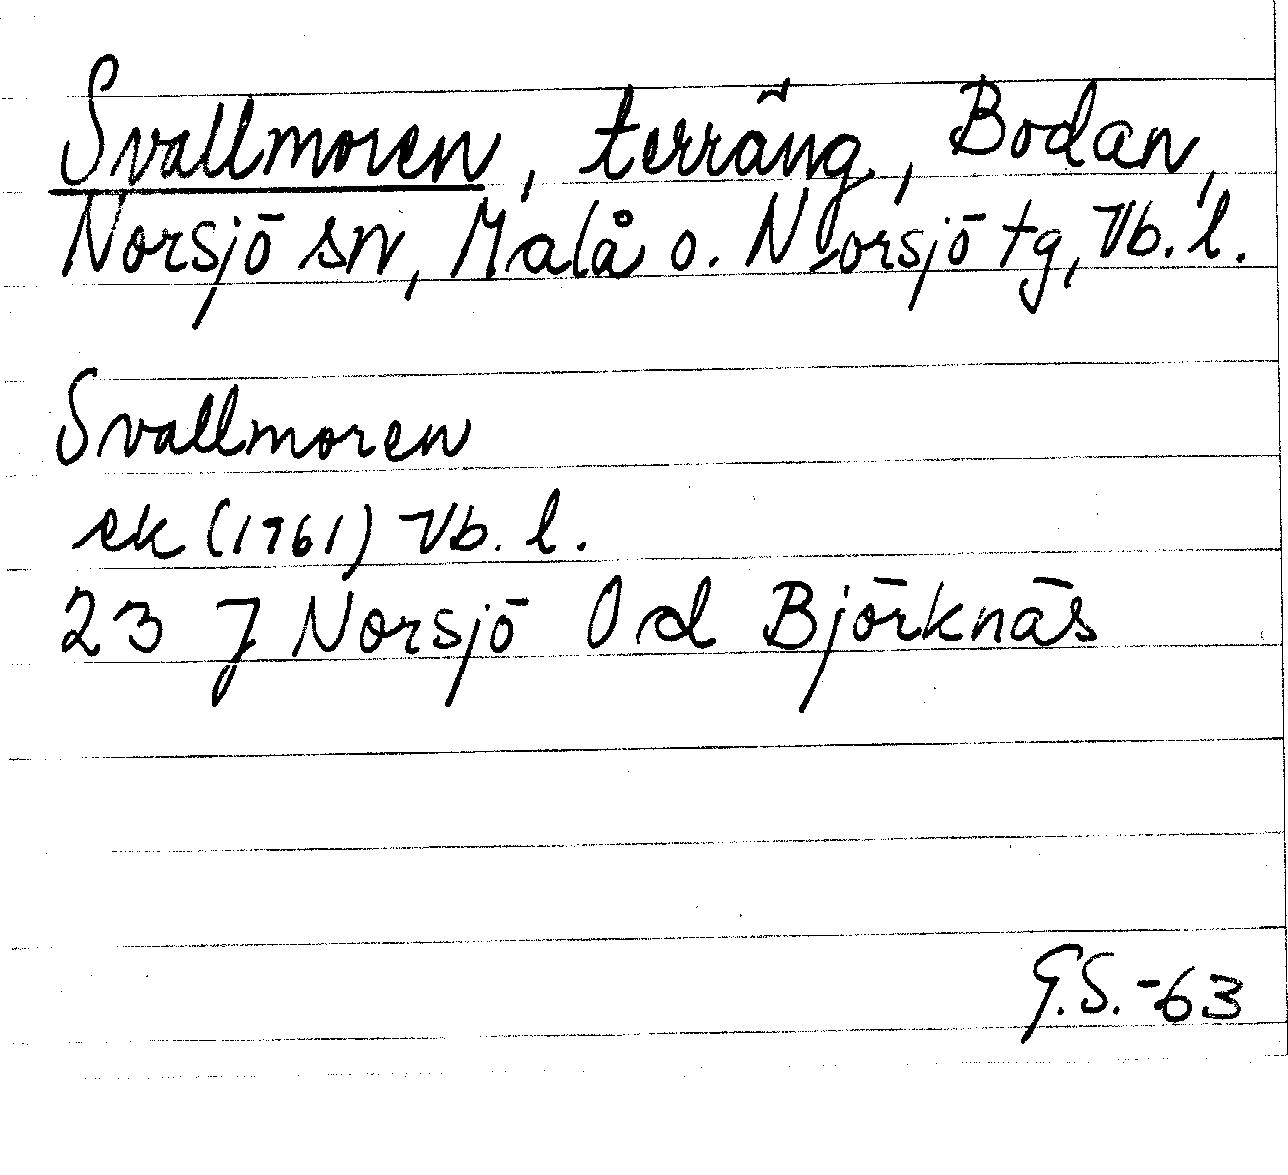 Svallmoren, terräng, Bodan,
Norsjö sn, Malå o. Norsjö tg, Vb. l.
Svallmoren
ek (1961) Vb. l.
23 J Norsjö 0d Björknäs
G.S.-63